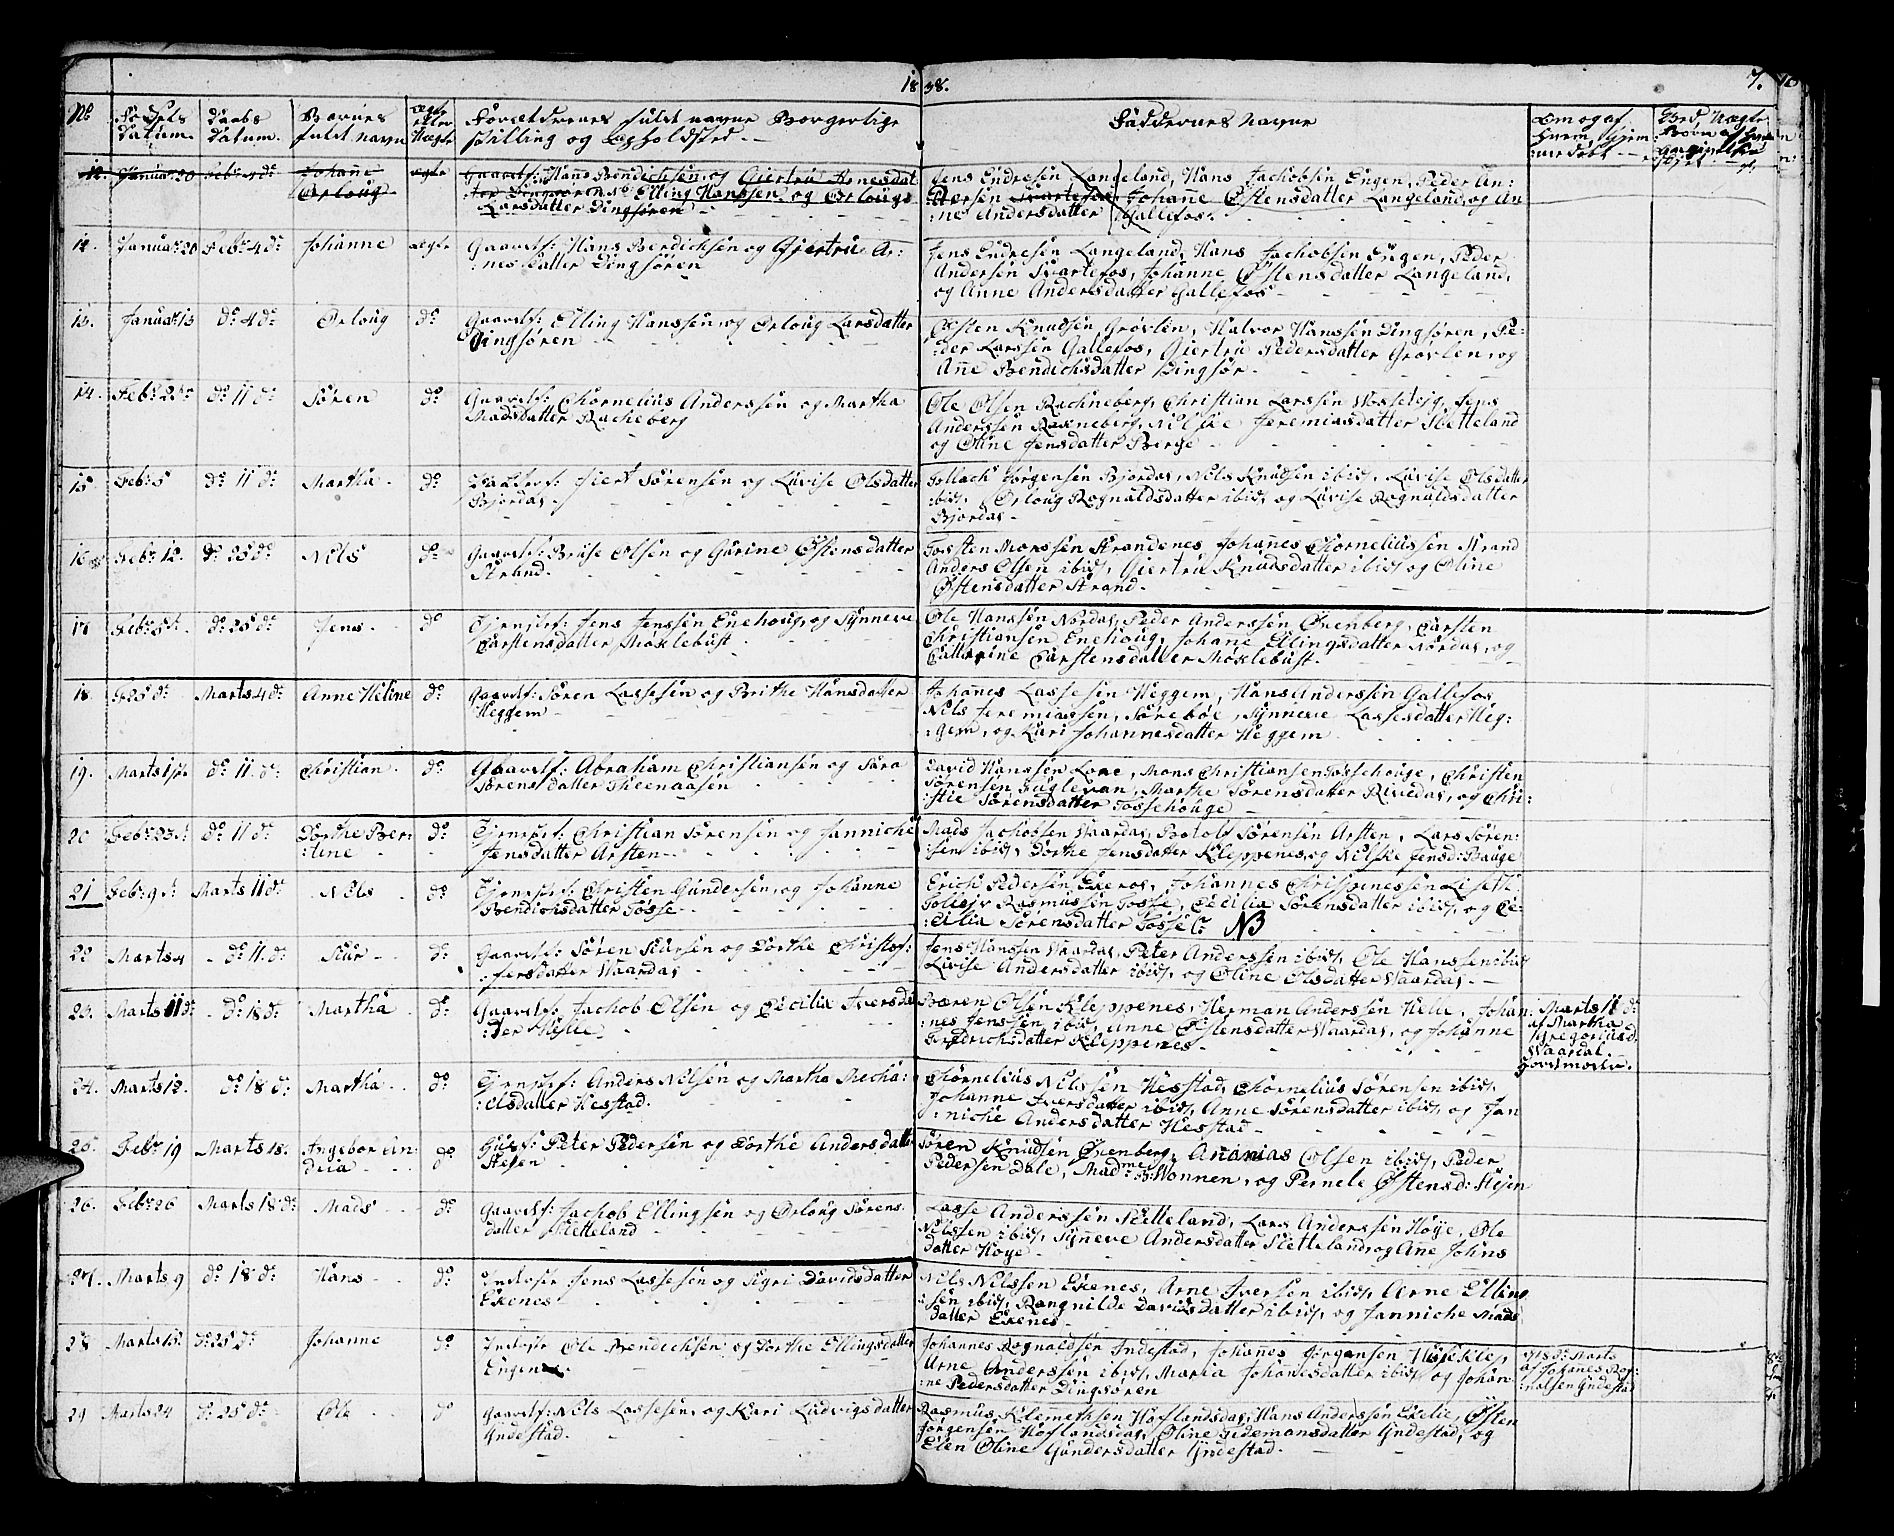 1838. 7.
No Fødsels Daabs Barnets ægte Forældrenes fulde navne Borgerlige Faddernes navne Om og af Ved Uægte
datum. datum. fulde navn eller Uægte stilling og Opholdsted. hvem hjem-
:medøbt
12. Januar 20 Febr. 4 do Johanne Ørloug ægte Gaardf: Hans Bendichsen og Giertru Arnesdat
ter Dingsøren Elling Hanssen og Ørloug
Larsdatter Dingsøren
Jens Endresen Langeland, Hans Jachobsen Engen, Peder An:
dersen Svartefos, Johanne Østensdatter Langeland, og An
:ne Andersdatter Gallefos.
12. Januar 20 Febr. 4 do Johanne ægte Gaardf: Hans Bendichsen og Gjertru Ar:
:nesdatter Dingsøren
Jens Endresen Langeland, Hans Jachobsen Engen, Peder
Andersen Svartefos, Johanne Østensdatter Langeland,
og Anne Andersdatter Gallefos
13. Januar 13 do 4 do Ørloug do Gaardf: Elling Hanssen og Ørloug Larsdatter
Dingsøren
Østen Knudsen Grøvlen, Halvor Hanssen Dingsøren, Pe:
:der Larssen Gallefos, Giertru Pedersdatter Grovlen, og
Ane Bendichsdatter Dingsør.
14. Febr. do 11 do Søren do Gaardf: Chornelius Anderssen og Martha
Madsdatter Racheberg
Ole Olsen Rachneberg, Christian Larssen Jens
Anderssen Nilske Jeremiasdatter Sletteland
og Oline Jensdatter Berge
15. Febr. 5 do 11 do Martha do Sørensen og Lovise Olsdatter
Bjordas.
Tollach Jørgensen Bjordas, Nils Knudsen ibid, Lovise Olsdatter
ibid, Ørloug Rognaldsdatter ibid, og Lovise Rognaldsdatter
Bjordas
16 Febr. 12. do 25 do Nils do Gaardf: Olsen og Gurine Østensdatter
Strand.
Torsten Monssen Strandenes Johanes Chorneliussen Strand
Anders Olsen ibid, Giertru Knudsdatter ibid og Oline
Østensdatter Strand.
17 Febr. do 25 do Jens do Tjenestf: Jens Jenssen Enehoug, og Synneve
Carstensdatter Møklebust
Ole Hanssen Nordas, Peder Anderssen Øxenberg, Carsten
Christiansen Enehoug, Johane Ellingsdatter Nordas, og
Cathrine Carstensdatter Møklebust.
18. F. 25 do Marts 4 do Anne Heline do Gaardf: Søren Lassesen og Brithe Hansdatter
Heggem
Johanes Lassesen Heggem, Hans Anderssen Gallefos
Nils Jeremiassen, Sørebøe, Synneve Lassesdatter Heg:
:gem, og Kari Johannesdatter Heggem
19. Marts do 11. do Christian do Gaardf: Abraham Christiansen og Sara
Sørensdatter Steenaasen
David Hanssen Lone, Mons Christiansen Tossehouge, Christen
Sørensen Fuglevan, Marthe Sørensdatter Rivedas, og Chri:
:stie Sørensdatter Tossehouge
20 Febr. 23 do 11 do Dorthe Ber:
:tine do Tjenestf: Christian Sørensen og Janniche
Jensdatter Arsten
Mads Jachobsen Vaardas, Botolf Sørensen Arsten, Lars Søren:
:sen ibid, Dorthe Jensdatter Kleppenes, og Nilske Jensd: Bauge
21 Febr. 9 Marts 11 do Nils do Tjenestf: Christen Gundersen, og Johanne
Bendichsdatter Tosse
Erich Pedersen Ekeros, Johannes Chrispenessen
Tollejv Rasmussen Tosse, Cecilia Sørensdatter ibid, og Ce:
:cilia Sørensdatter Tosse NB
22 Marts 4 do 11. do Siur do Gaardf: Søren Siursen og Dorthe Christof:
:fersdatter Vaardas
Jens Hanssen Vaardas, Peter Anderssen ibid, Ole Hanssen ibid
Lovise Andersdatter ibid, og Oline Olsdatter Vaardas
23. Marts 11 do do 18 do Martha do Gaardf: Jachob Olsen og Cecilia Iversdat
:ter Helle
Olsen Kleppenes, Herman Anderssen Helle, Johan:
:nes Jenssen ibid, Anne Østensdatter Vaardas, og Johanne
Fredrichsdatter Kleppenes
Marts 11 do
af Martha
Gregoriusd.
Vaardal
Jordmoder.
24. Marts 12. do 18 do Martha do Tjenestf: Anders Nilsen og Martha Mecha:
:elsdatter Hesstad.
Chornelius Nilssen Hesstad, Chornelius Sørensen ibid,
Johanne Iversdatter ibid, Anne Sørensdatter ibid, og Jan
:niche Andersdatter Hesstad
25. Febr. 19 Marts 18. Ingebor An
drea do Husf: Peter Pedersen og Dorthe Andersdatter
Steien
Søren Knudsen Øxenberg, Ananias Olsen ibid, Peder
Pedersen Dale, Madme B: Wonnen, og Pernele Østensd: Steien
26. Febr. 26 Marts 18 do Mads do Gaardf: Jachob Ellingsen og Ørloug Sørens
datter Sletteland
Lasse Anderssen Sletteland, Lars Anderssen Høye, Ole
Nilssen ibid, Synneve Andersdatter Sletteland og Ane Johns
datter Høye
27. Marts 9 do 18 do Hans do Inderst Jens Lassesen og Sigri Davidsdatter
Ekenes
Nils Nilssen Ekenes, Arne Iversen ibid, Arne Elling
:sen ibid, Rangnilde Davidsdatter ibid, og Janniche Mads
datter Ekenes
28 Marts 13. do 25 do Johanne do Inderste Ole Bendichsen og Dorthe Ellingsdatter
Engene.
Johannes Rognaldsen Indestad, Johanes Jørgensen
Arne Anderssen ibid, Maria Johanesdatter ibid og Johan
:ne Pedersdatter Dingsøren
18 do Marts
af Johanes Rog
:nalsen Yndestad
29 Marts 24 do 25 do Ole do Gaardf: Nils Lassesen, og Kari Ludvigsdatter
Yndestad.
Rasmus Klemethsen Hoflandsdas, Hans Anderssen Ekelie, Østen
Jørgensen Hoflandsdas, Oline Tidemansdatter Yndestad, og
Elen Oline Gundersdatter Yndestad.